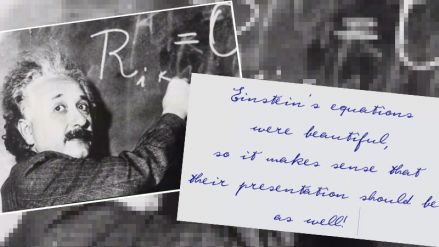 R i k = 0
Einstein's equations
were beautiful,
so it makes sense that
their presentation should be
as well!